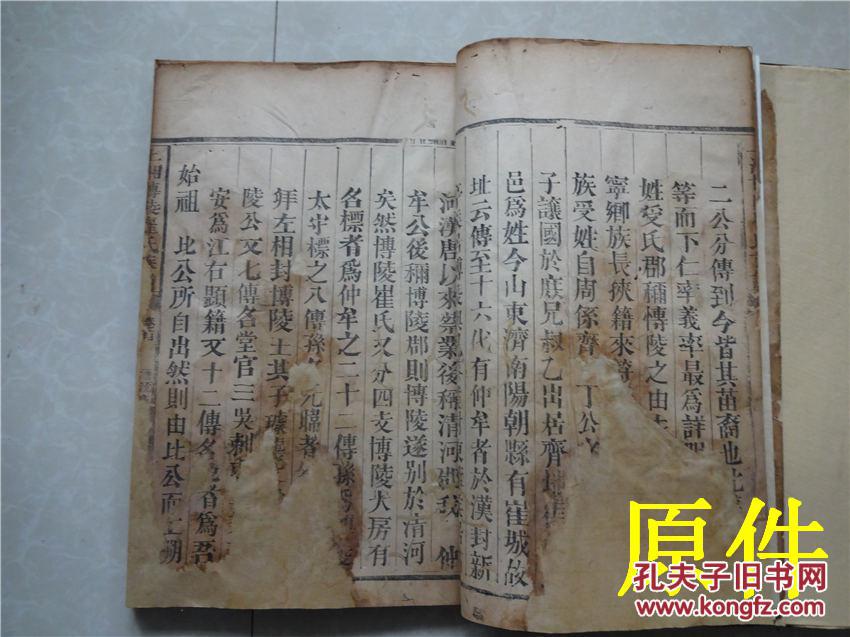 二公分傳到今皆其苗裔也
等而下仁率義率最爲詳
姓受氏郡稱博陵之由
寧鄉族長挾籍來
族受姓自周係齊 丁公
子讓國於庶兄叔乙出居齊
邑爲姓今山東濟南陽朝縣有崔城故
址云傳至十六代有仲牟者於漢封新
河漢唐以來榮業後稱清河 仲
牟公後稱博陵郡則博陵遂別於清河
矣然博陵崔氏又分四支博陵大房有
名標者爲仲牟之二十二傳孫
太守標之八傳孫 元 者
拜左相封博陵王其子
陵公又七傳名堂官三吳刺
安爲江右顯籍又十二傳名 者爲吾
始祖 比公所自出然則由比公而上朔
原件
孔夫子旧书网
www.kongfz.com